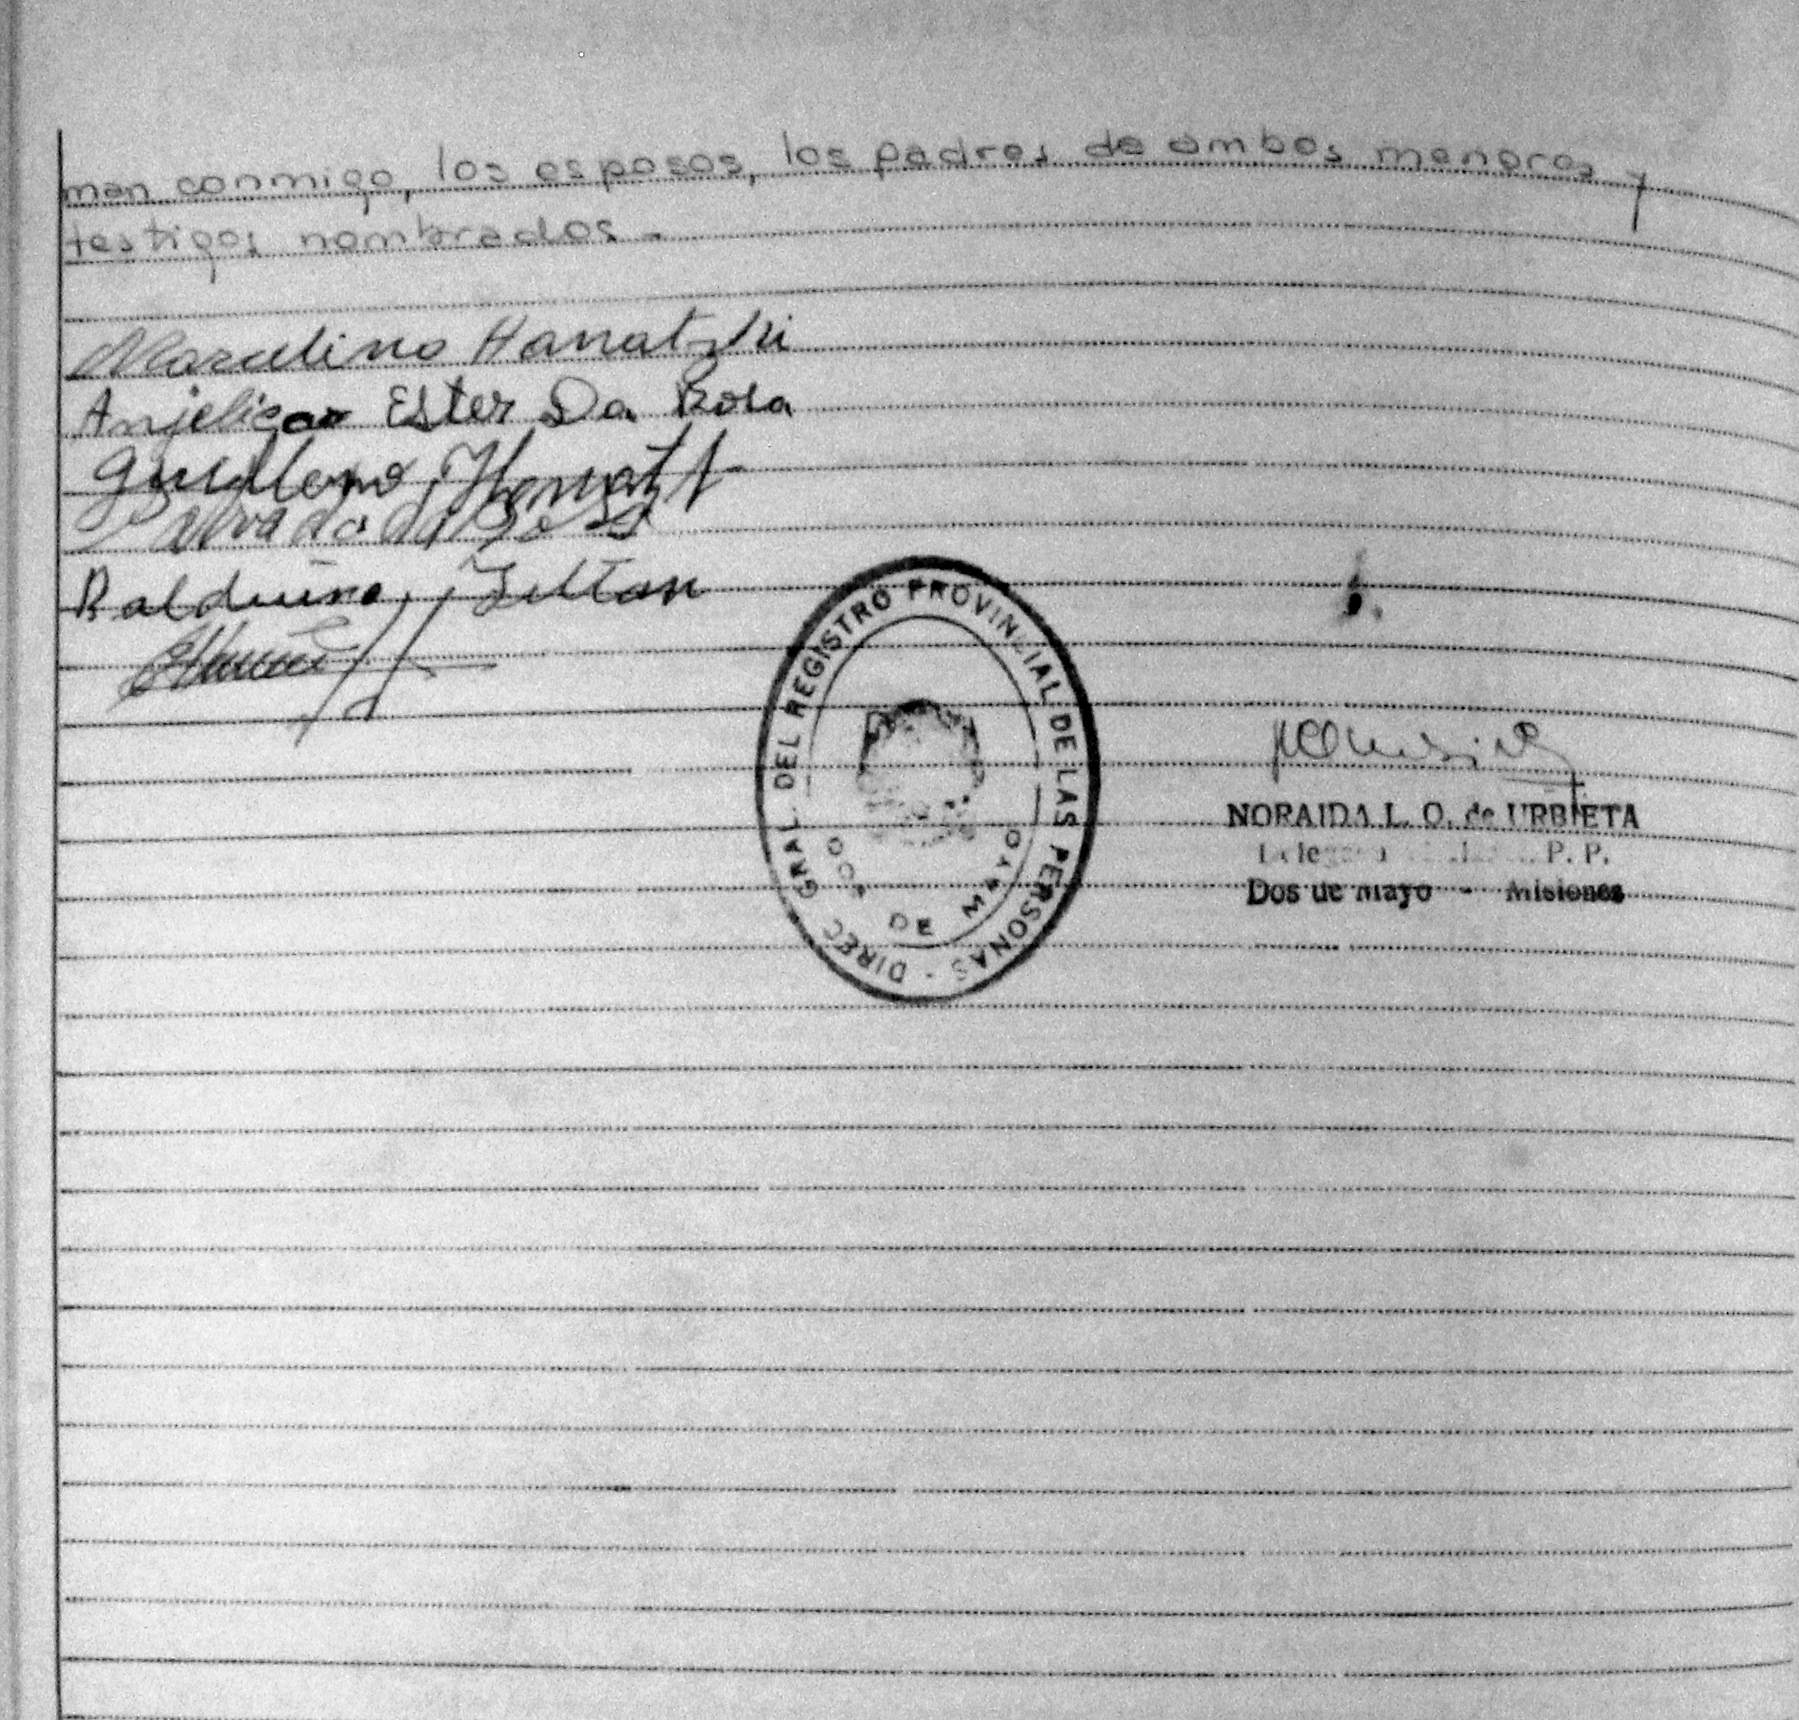 man conmigo, los esposos, los padres de ambos menores y
testigos nombrados.-
Marcelino Hanatzki
Anjelica Ester Da Rosa
Guillermo
Balduino
DIREC GRAL DEL REGISTRO PROVINCIAL DE LAS PERSONAS -
DOS DE MAYO
NORAIDA L. O. de URBIETA
P. P.
Dos de Mayo - Misiones